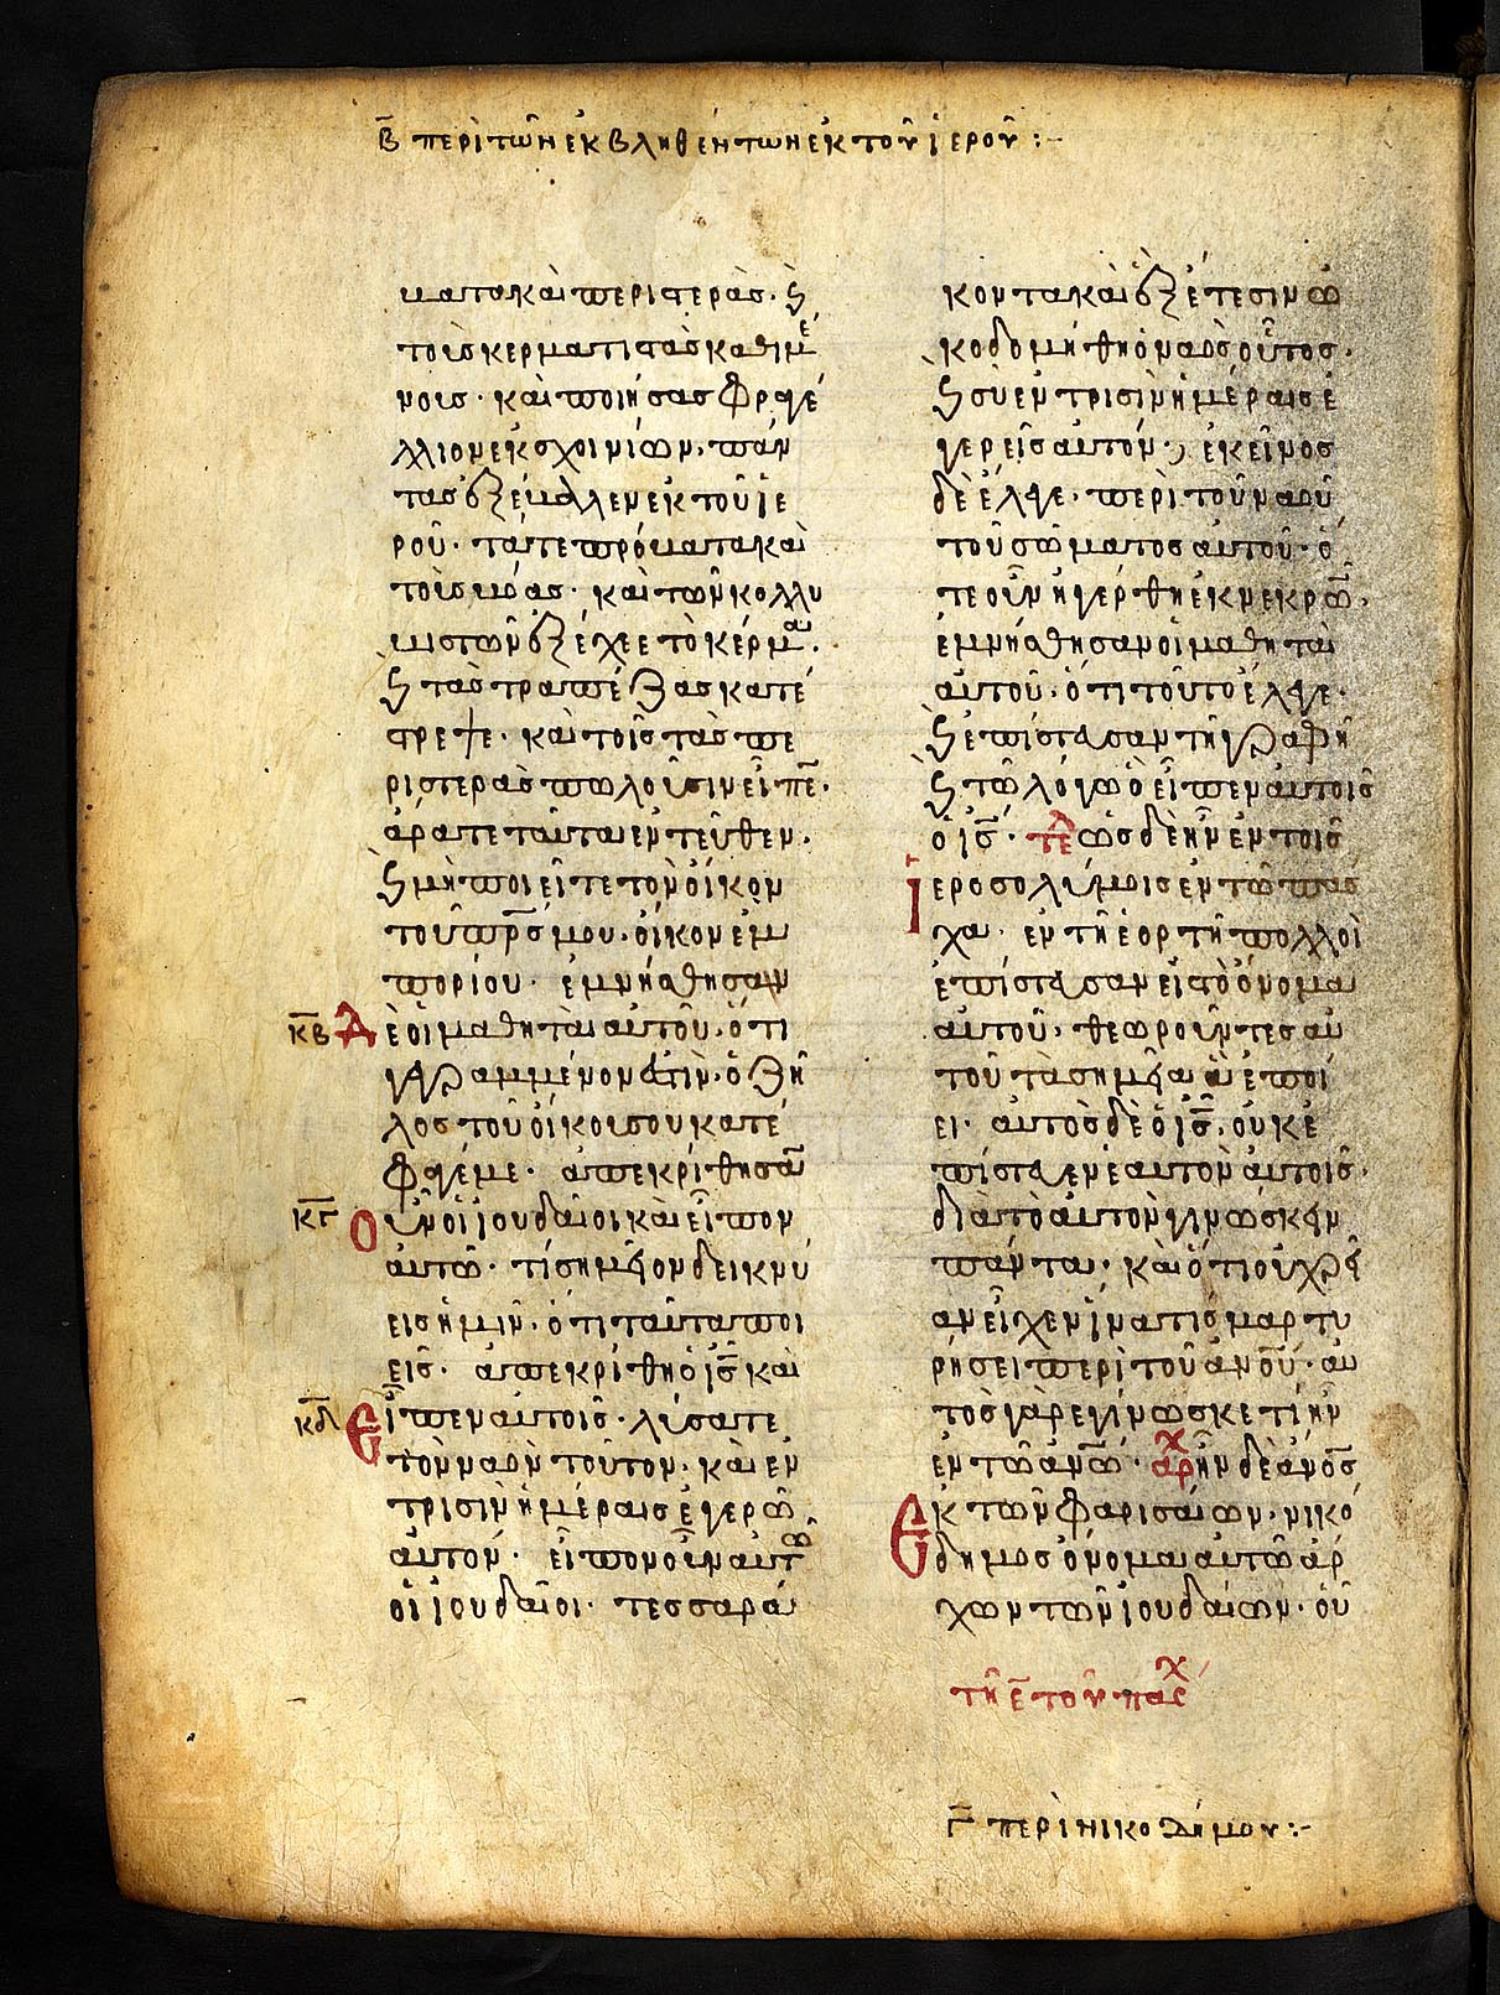 β̄ περὶ τῶν ἐκβληθέντων ἐκ τοῦ ἱεροῦ :-
βατα καὶ περιστεράς. ϗ
τοὺς κερματιστὰς καθημέ
νους. καὶ ποιήσας φραγέ
λλιον ἐκ σχοινίων, πάν
τας ἐξέβαλλεν ἐκ τοῦ ἱε
ροῦ. τά τε πρόβατα καὶ
τοὺς βόας. καὶ τῶν κολλυ
βιστῶν ἐξέχεε τὸ κέρμα.
ϗ τὰς τραπέζας κατέ
στρεψε. καὶ τοῖς τὰς πε
ριστερὰς πωλοῦσιν εἶπε̄.
ἄρατε ταῦτα ἐντεῦθεν.
ϗ μὴ ποιεῖτε τὸν οἶκον
τοῦ πρ̄ς μου. οἶκον ἐμ
πορίου. ἐμνήσθησαν
κ̄β Δὲ οἱ μαθηταὶ αὐτοῦ. ὅτι
γεγραμμένον ἐστὶν. ὁ ζῆ
λος τοῦ οἴκου σου κατέ
φαγέ με. ἀπεκρίθησᾱ
κ̄γ Οὖν οἱ ἰουδαῖοι καὶ εἶπον
αὐτῶ. τί σημεῖον δεικνύ
εις ἡμῖν. ὅτι ταῦτα ποι
εῖς. ἀπεκρίθη ὁ ις̄ καὶ
κ̄δ Εἶπεν αὐτοῖς. λύσατε
τὸν ναὸν τοῦτον. καὶ ἐν
τρισὶν ἡμέραις ἐγερῶ
αὐτόν. εἶπον οὖν αὐτῶ
οἱ ἰουδαῖοι. τεσσαρά
κοντα καὶ ἓξ ἔτεσιν ὠ
κοδομήθη ὁ ναὸς οὗτος.
ϗ σὺ ἐν τρισὶν ἡμέραις ἐ
γερεῖς αὐτόν; ἐκεῖνος
δὲ ἔλεγε. περὶ τοῦ ναοῦ
τοῦ σώματος αὐτοῦ. ὅ
τε οὖν ἠγέρθη ἐκ νεκρῶ̄.
ἐμνήσθησαν οἱ μαθηταὶ
αὐτοῦ. ὅτι τοῦτο ἔλεγε.
ϗ ἐπίστευσαν τῆ γραφῆ
ϗ τῶ λόγω ὃ εἶπεν αὐτοῖς
ὁ ις̄. τε̄λ ὡς δὲ ἦν ἐν τοῖς
Ἱεροσολύμοις ἐν τῶ πάσ
χα. ἐν τῆ ἑορτῆ πολλοὶ
ἐπίστευσαν εἰς τὸ ὄνομα
αὐτοῦ. θεωροῦντες αὐ
τοῦ τὰ σημεῖα ἃ ἐποί
ει. αὐτὸς δὲ ὁ ις̄. οὐκ ἐ
πίστευεν ἑαυτὸν αὐτοῖς.
διὰ τὸ αὐτὸν γινώσκειν
πάντα. καὶ ὅτι οὐ χρεί
αν εἶχεν ἵνα τις μαρτυ
ρήσει περὶ τοῦ ἀνου̅. αὐ
τὸς γὰρ ἐγίνωσκε τί ἦν
ἐν τῶ ἀνω̅. ἀρχ ἦν δὲ ἀνο̅ς
Ἐκ τῶν φαρισαίων. νικό
δημος ὄνομα αὐτῶ ἄρ
χων τῶν ἰουδαίων. οὗ
τῆ ε̄ τοῦ πάσχ
γ̄ περὶ νικοδήμου :-